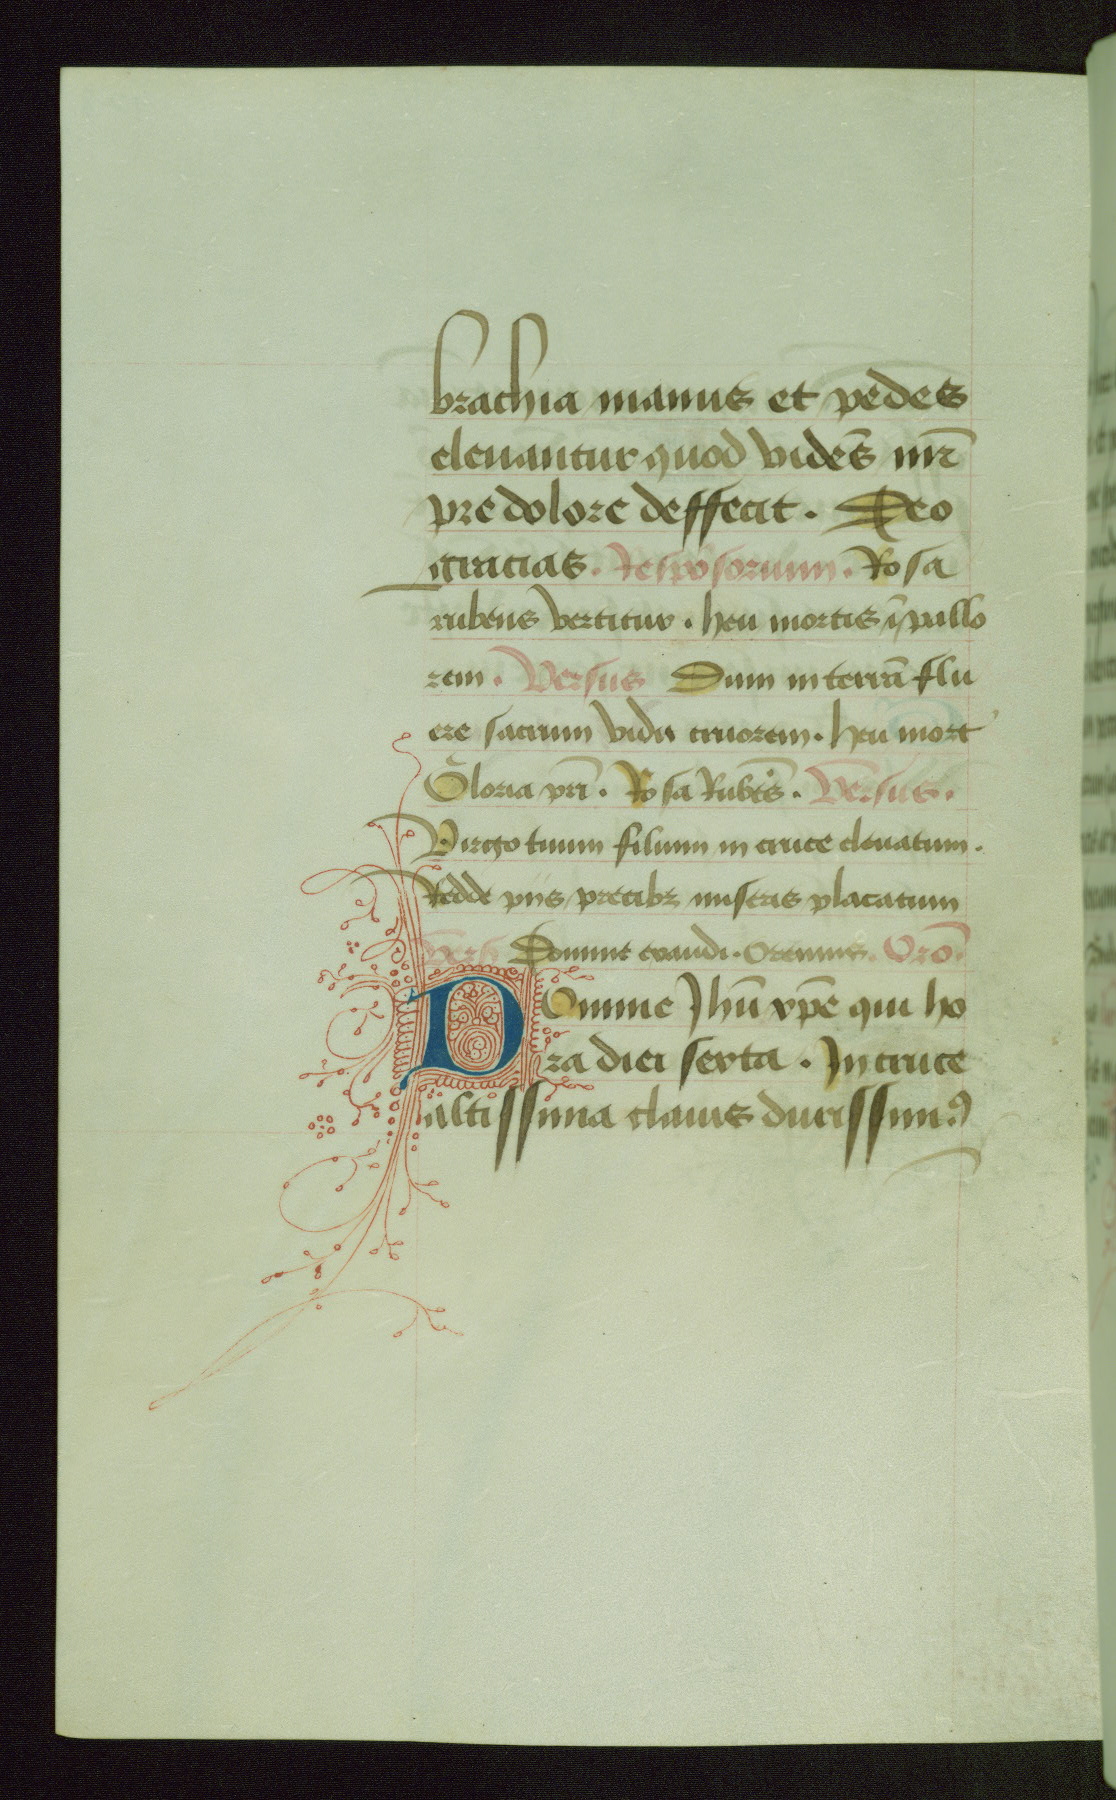 brachia manus et pedes
eleuantur quod vidẽs mr̃
pre dolore deffecit. Deo
gracias. Respõsorium. Rosa
rubens vertitur. heu mortis ĩ pallo
rem. Versus Dum in terrã flu
ere sacrum vidit cruorem. heu mort
Gloria pr̃i. Rosa Rubẽs. Versus.
Virgo tuum filium in cruce eleuatum.
Redde piis precibz miseris placatum
Vers Domine exaudi. Oremus. Orõ.
Domine Jhũ xp̃e qui ho
ra diei sexta. In cruce
altissima clauis durissimꝯ